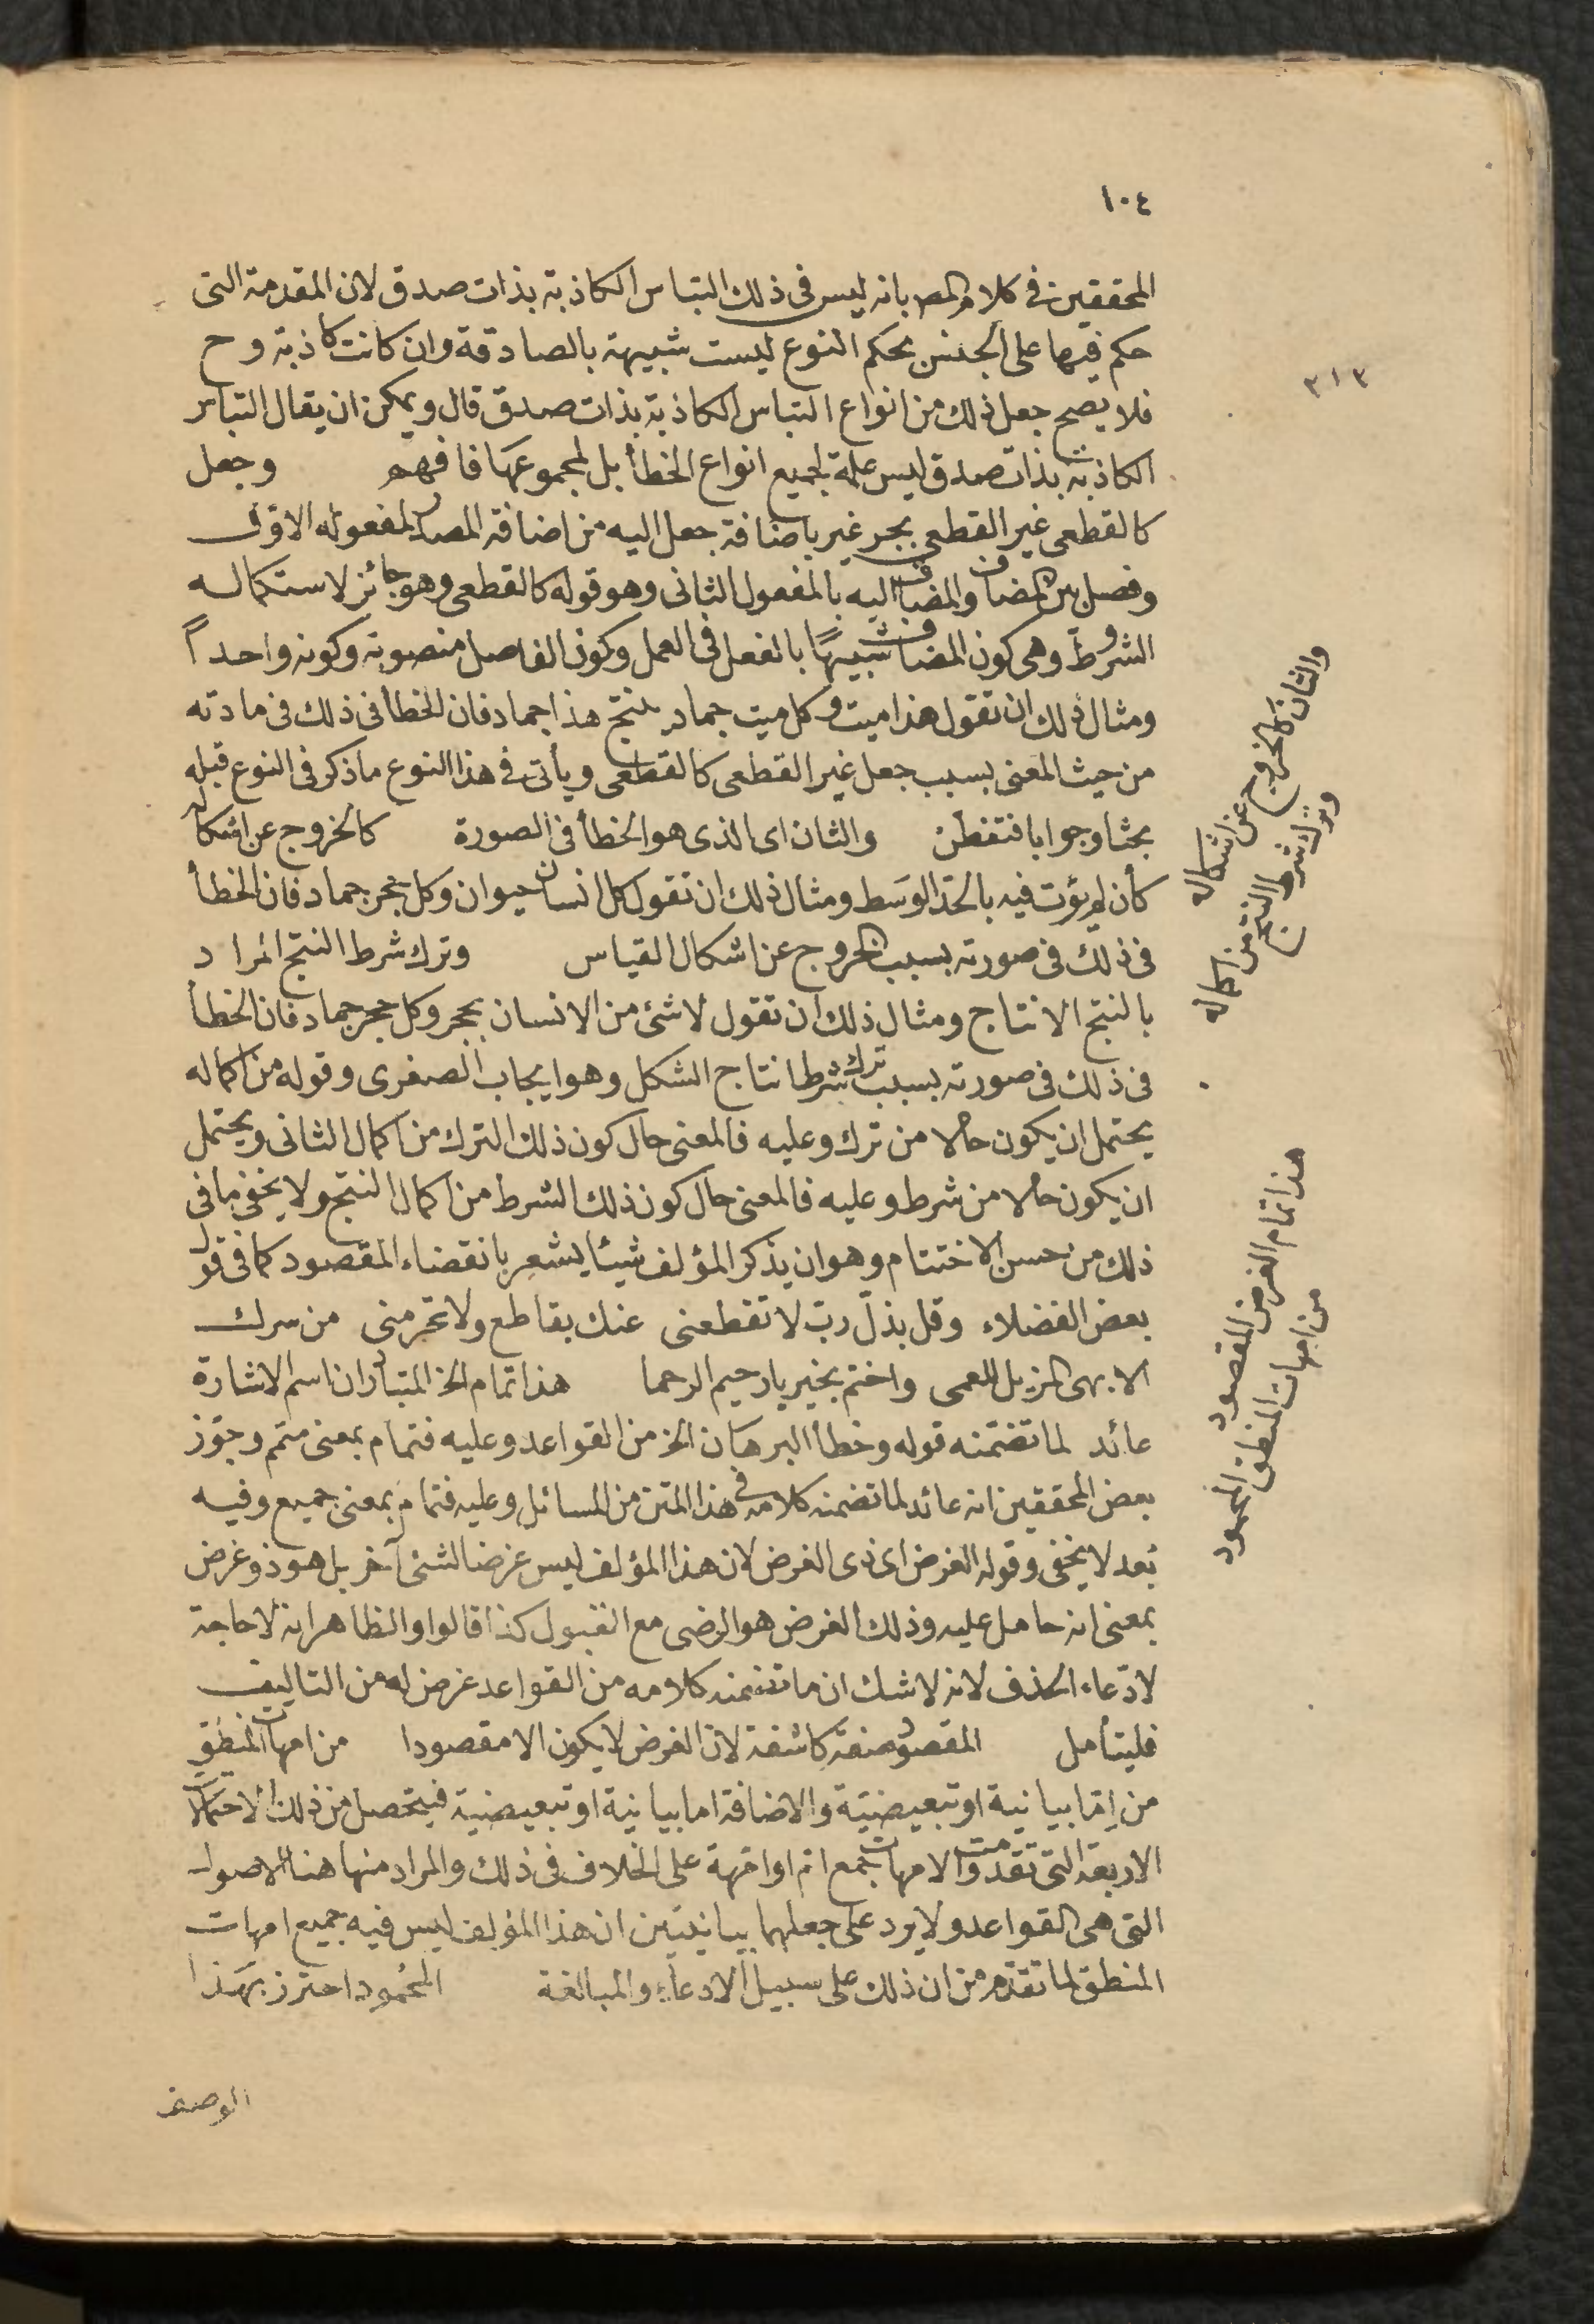 ١٠٤
المحققين في كلام المصر بانه ليس في ذلك التباس الكاذبة بذات صدق لان المقدمة التى
حكم فيها على الجنس بحكم النوع ليست شبيهة بالصادقة وان كانت كاذبة وح
فلا يصح جعل ذلك من انواع التباس الكاذبة بذات صدق قال ويمكن ان يقال التباس
الكاذبة بذات صدق ليس علة لجميع انواع الخطأ بل لمجموعها فافهم وجعل
كالقطعى غير القطعى بجر غير باضافة جعل اليه من اضافة المصدر لمفعوله الاول
وفصل بين المضاف والمضاف اليه بالمفعول الثانى وهو قوله كالقطعى وهو جائز لاستكماله
الشروط وهى كون المضاف شبيهًا بالفعل فى العمل وكون الفاصل منصوبه وكونه واحداً
ومثال ذلك ان تقول هذا ميت وكل ميت جماد ينتج هذا جماد فان الخطأ فى ذلك فى مادته
من حيث المعنى بسبب جعل غير القطعى كالقطعى ويأتى فى هذا النوع ما ذكر فى النوع قبله
بحثا وجوابا فتفطن والثان اى الذى هو الخطأ فى الصورة كالخروج عن اشكاله
كأن لم يؤت فيه بالحدّ الوسَط ومثال ذلك ان تقول كل انسان حيوان وكل حجر جماد فان الخطأ
فى ذلك فى صورته بسبب الخروج عن اشكال القياس وترك شرط النتج المراد
بالنتج الانتاج ومثال ذلك ان تقول لاشئ من الانسان بحجر وكل حجر جماد فان الخطأ
فى ذلك فى صورته بسبب ترك شرط انتاج الشكل وهو ايجاب الصغرى وقوله من اكماله
يحتمل ان يكون حالا من ترك وعليه فالمعنى حال كون ذلك الترك من اكمال الثانى ويحتمل
ان يكون حالا من شرط وعليه فالمعنى حال كون ذلك الشرط من اكمال النتج ولا يخفى ما فى
ذلك من حسن الاختتام وهو ان يذكر المؤلف شيئا يشعر بانقضاء المقصود كما فى قول
بعض الفضلاء وقل بذلّ ربّ لا تقطعنى عنك بقاطع ولا تحرمنى من سرك
الابهى المزيل للعمى واختم بخير يارحيم الرحما هذا تمام الخ المتبادر ان اسم الاشارة
عائد لما تضمنه قوله وخطأ البرهان الخ من القواعد وعليه فتمام بمعنى متمم وجوّز
بعض المحققين انه عائد لما تضمنه كلامه فى هذا المتن من المسائل وعليه فتمام بمعنى جميع وفيه
بُعد لا يخفى وقوله الغرض اى ذى الغرض لان هذا المؤلف ليس غرضا لشئ آخر بل هو ذو غرض
بمعنى انه حامل عليه وذلك الغرض هو الرضى مع القبول كذا قالوا والظاهر انه لا حاجة
لادّعاء الحذف لانه لاشك ان ما تضمنه كلامه من القواعد غرض له من التاليف
فليتأمل المقصود صفة كاشفة لان الغرض لا يكون الا مقصودا من امهات المنطق
من اِمّا بيانية او تبعيضيّة والاضافة اما بيانية او تبعيضية فيتحصل من ذلك الاحتمالات
الاربعة التى تقدمت والامهات جمع ام او امّهة على الخلاف فى ذلك والمراد منها هنا الاصول
التى هى القواعد ولا يرد على جعلهما بيانيتين ان هذا المؤلف ليس فيه جميع امهات
المنطق لما تقدّم من ان ذلك على سبيل الادعاء والمبالغة المحْمُود احترز بهَذا
الوصف
٣١٣
والثان كالخروج عن اشكاله
وترك شرط النتج من اكماله
هذا تمام الغرض المقصود
من امهات المنطق المحمود